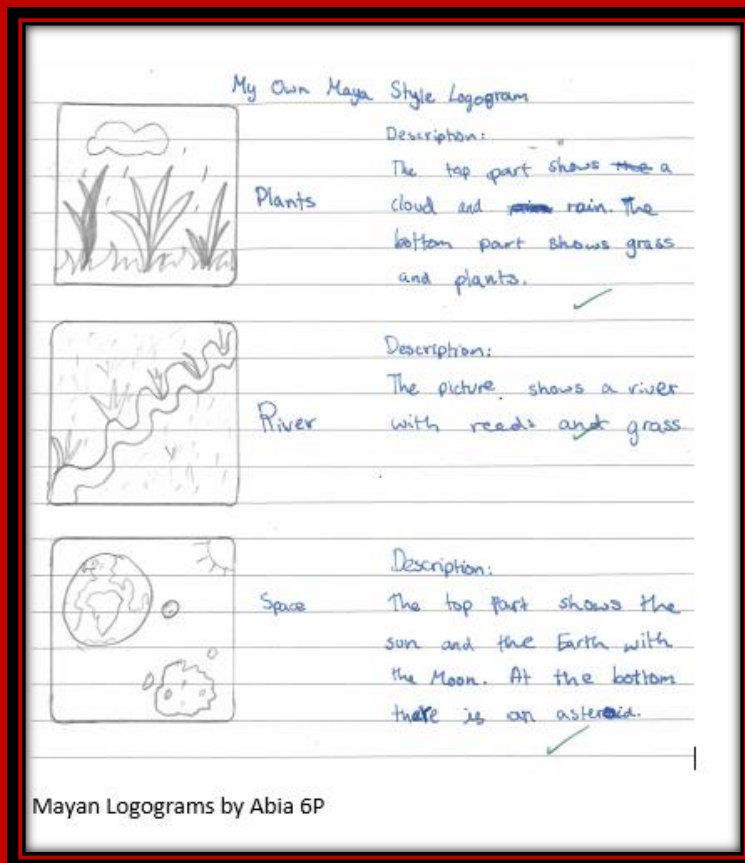 My Own Maya Style Logogram
Plants
Description:
The top part shows the a
cloud and rain. The
bottom part shows grass
and plants.
River
Description:
The picture shows a river
with reeds and grass
Space
Description:
The top part shows the
sun and the Earth with
the Moon. At the bottom
there is an asteroid.
Mayan Logograms by Abia 6P